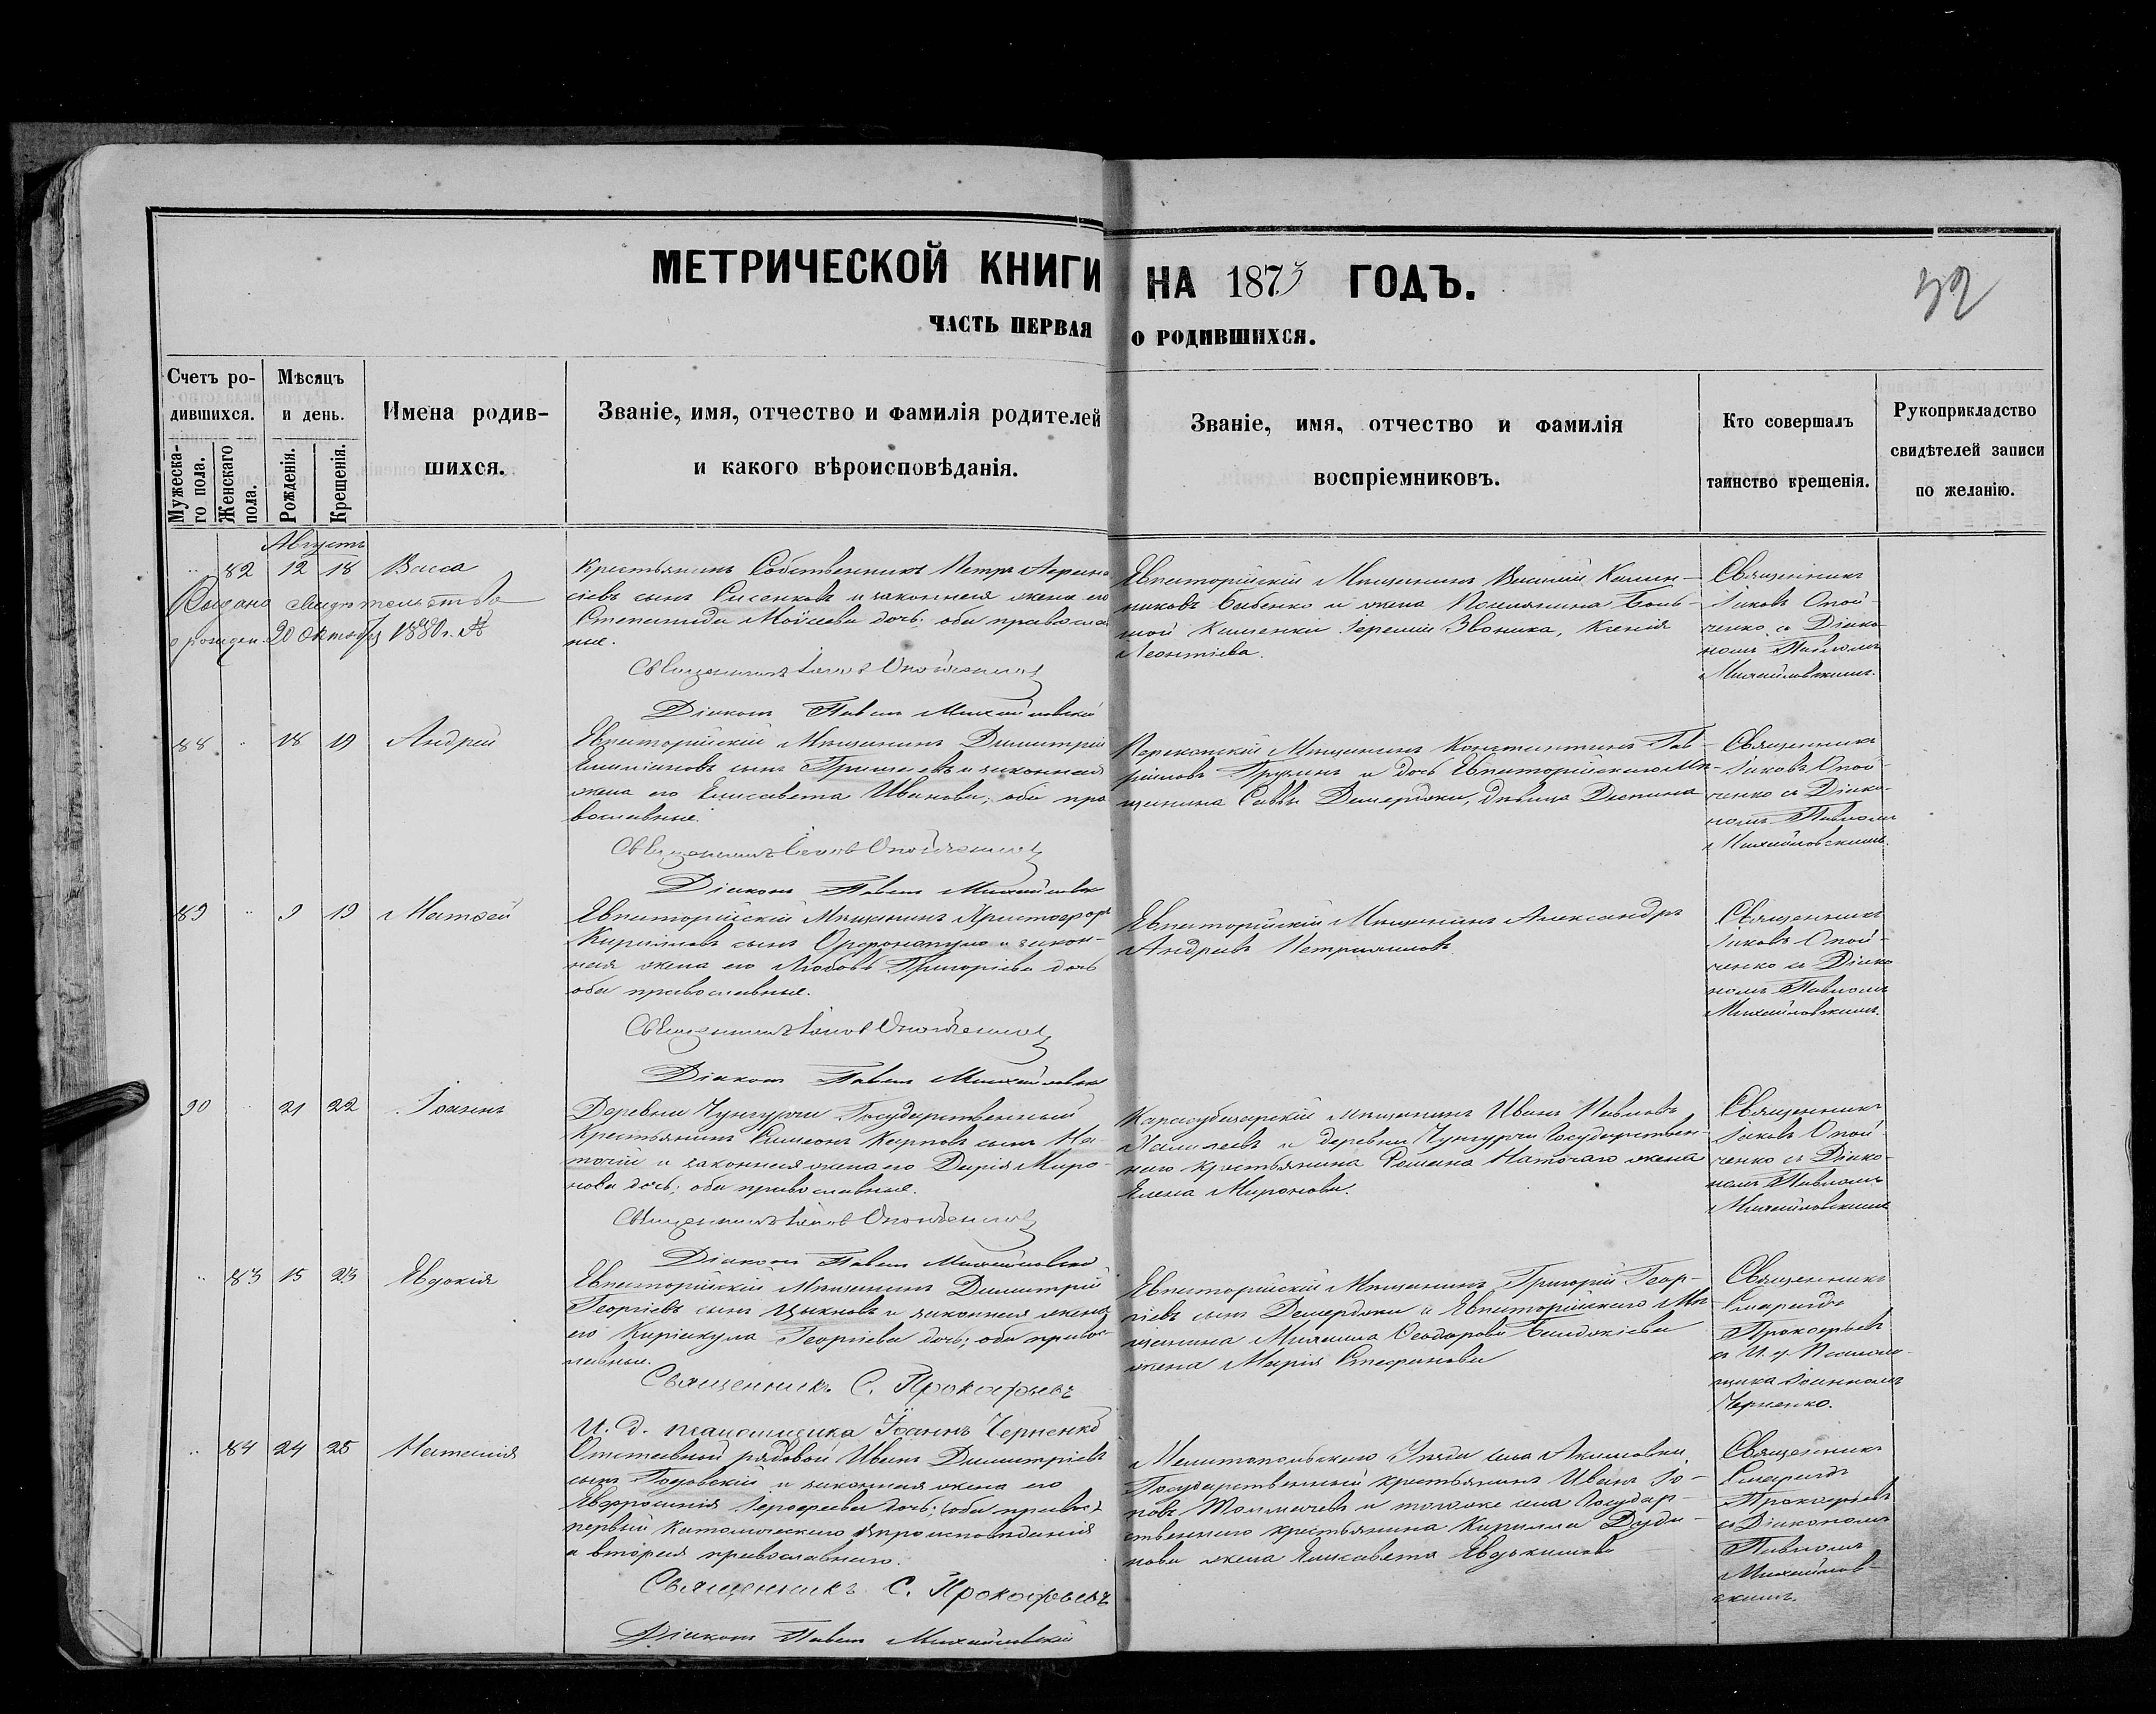 МЕТРИЧЕСКОЙ КНИГИ НА 1873 ГОДЪ.
32
ЧАСТЬ ПЕРВАЯ О РОДИВШИХСЯ.
Счетъ ро-
дившихся.
Мужеска-
го пола.
Женскаго
пола.
Мѣсяцъ
и день.
Рожденія.
Крещенія.
Имена родив-
шихся.
Званіе, имя, отчество и фамилія родителей
и какого вѣроисповѣданія.
Званіе, имя, отчество и фамилія
воспріемниковъ.
Кто совершалъ
таинство крещенія.
Рукоприкладство
свидѣтелей записи
по желанію.
Августъ
82 12 18 Васса
Выдано свидѣтельство
о рожден. 20 Октября 1880 г.
Крестьянинъ Собственникъ Петръ
сынъ и законная жена его
Степанида Моисеева дочь: оба православ
ные.
Священникъ Іаковъ Опойченко
Діаконъ Павелъ Михайловскій
Евпаторійскій Мѣщанинъ Василій
жена
Ксенія
Леонтіева.
Священникъ
Іаковъ Опой-
ченко съ Діако-
номъ Павломъ
Михайловскимъ.
88 18 19 Андрей
Евпаторійскій Мѣщанинъ Димитрій
сынъ и законная
жена его Елисавета Иванова; оба пра
вославные.
Священникъ Іаковъ Опойченко
Діаконъ Павелъ Михайловскій
Перекопскій Мѣщанинъ Константинъ Гав-
риловъ и дочь Евпаторійскаго Мѣ-
щанина Саввы Демерджи, дѣвица
Священникъ
Іаковъ Опой-
ченко съ Діако-
номъ Павломъ
Михайловскимъ.
89 9 19 Матѳей
Евпаторійскій Мѣщанинъ Христофоръ
Кирилловъ сынъ и закон-
ная жена его Любовь Григоріева дочь
оба православные.
Священникъ Іаковъ Опойченко
Діаконъ Павелъ Михайловскій
Евпаторійскій Мѣщанинъ Александръ
Андреевъ
Священникъ
Іаковъ Опой-
ченко съ Діако
номъ Павломъ
Михайловскимъ.
90 21 22 Іоаннъ
Деревни Чунгурчи Государственный
Крестьянинъ Симеонъ Карповъ сынъ На-
точій и законная жена его Дарія Миро-
нова дочь; оба православные.
Священникъ Іаковъ Опойченко
Діаконъ Павелъ Михайловскій
Карасубазарскій мѣщанинъ Иванъ Павловъ
и деревни Чунгурчи Государствен-
наго крестьянина Романа Наточаго жена
Елена Миронова.
Священникъ
Іаковъ Опой-
ченко съ Діако-
номъ Павломъ
Михайловскимъ
83 15 23 Евдокія
Евпаторійскій Мѣщанинъ Димитрій
Георгіевъ сынъ Цыкновъ и законная жена
его Киріакула Георгіева дочь; оба правос-
лавные.
Священникъ С. Прокофьевъ
И. д. псаломщика Іоаннъ Черненко
Евпаторійскій Мѣщанинъ Григорій Геор-
гіевъ сынъ Демерджи и Евпаторійскаго Мѣ-
щанина Михаила Ѳеодорова
жена Марія Стефанова
Священникъ
Смарагдъ
Прокофьевъ
съ И. д. Псалом-
щика Іоанномъ
Черненко.
84 24 25 Наталія
Отставной рядовой Иванъ Димитріевъ
сынъ и законная жена его
Евфросинія дочь;
первый Католическаго вѣроисповѣданія
а вторая православнаго.
Священникъ С. Прокофьевъ
Діаконъ Павелъ Михайловскій
Мелитопольскаго Уѣзда села Акимовки
Государственный крестьянинъ Иванъ
Толмачевъ и тогоже села Государ-
ственнаго крестьянина Кирилла
жена Елисавета Евдокимова
Священникъ
Смарагдъ
Прокофьевъ
съ Діакономъ
Павломъ
Михайлов-
скимъ.